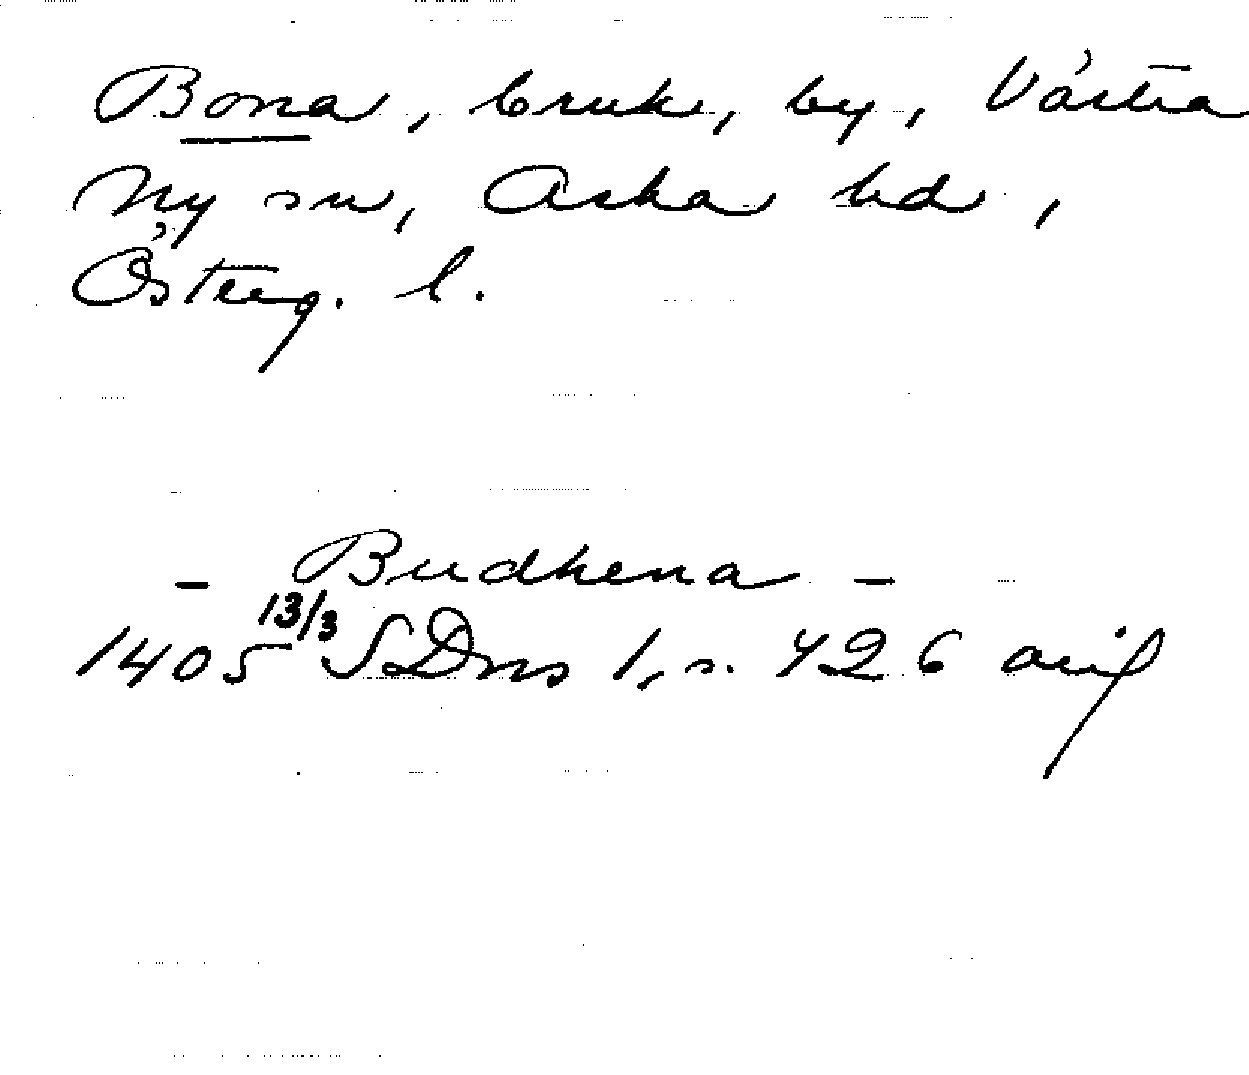 Bona, bruk, by, Västra
Ny sn, Aska hd,
Österg. l.
- Budhena -
1405 13/3 SDns 1, s. 426 avs